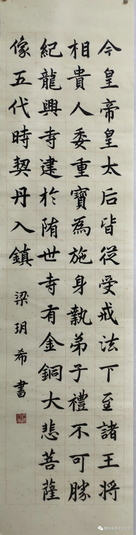 今皇帝皇太后皆從受戒法下至諸王將
相貴人委重寶為施身執弟子禮不可勝
紀龍興寺建於隋世寺有金銅大悲菩薩
像五代時契丹入鎮
梁玥希書